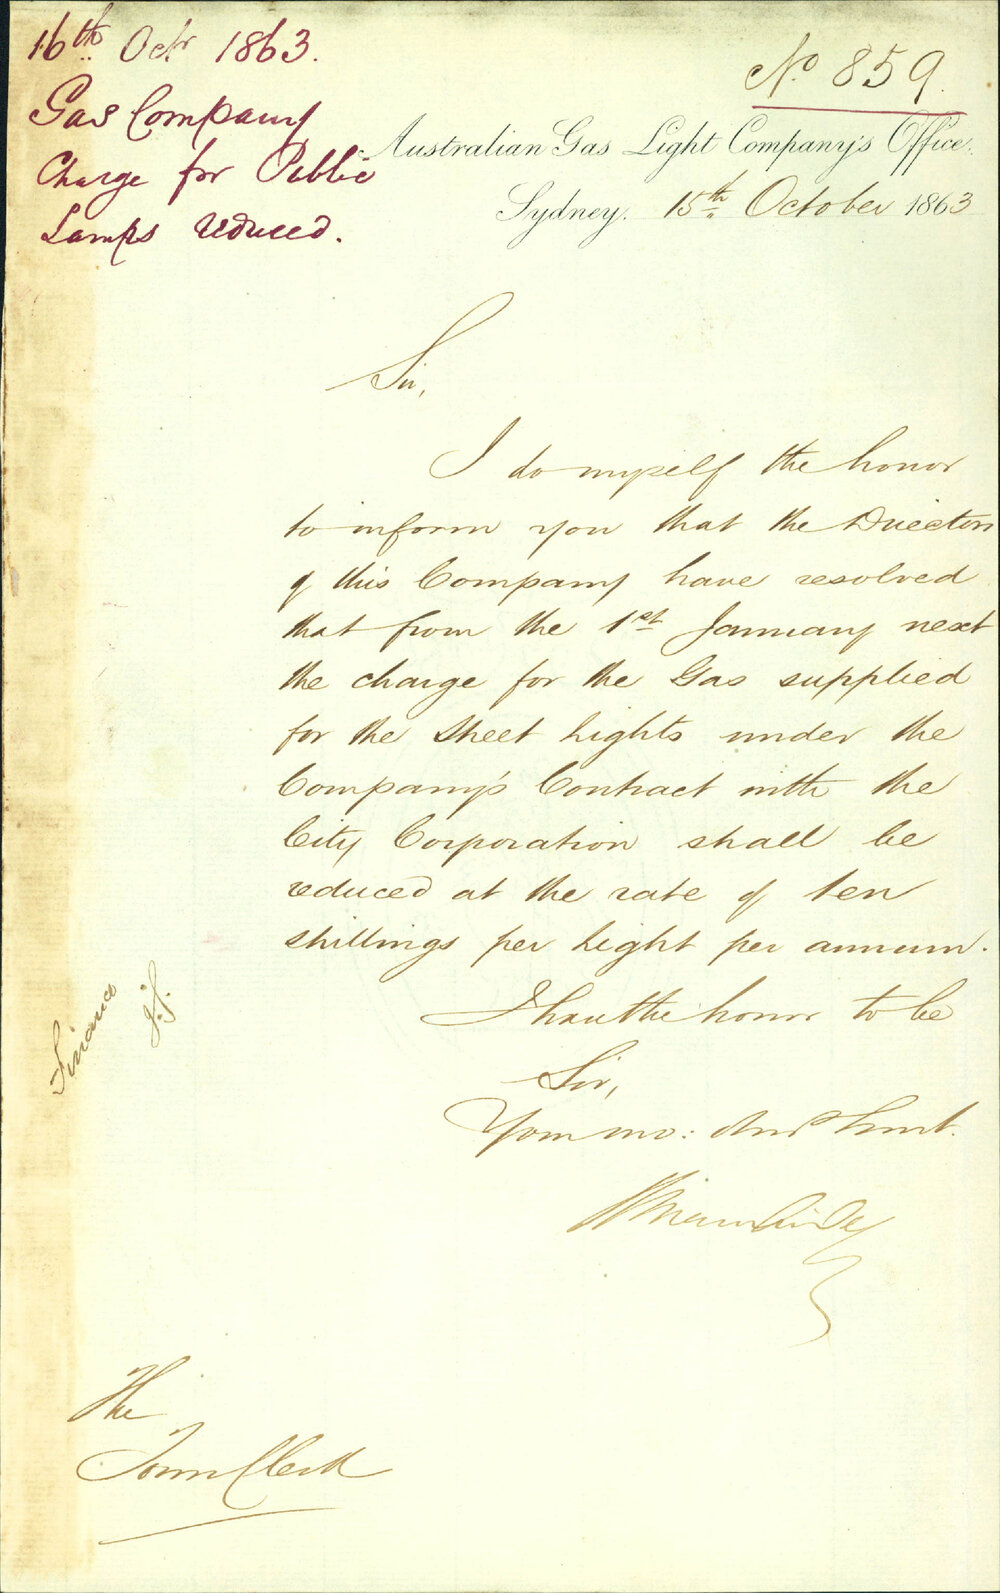 16th Octr 1863.
Gas Company
Charge for Public
Lamps reduced.
No. 859.
Australian Gas Light Company's Office.
Sydney. 15th October 1863
Sir,
I do myself the honor
to inform you that the Directors
of this Company have resolved
that from the 1st January next
the charge for the Gas supplied
for the Street Lights under the
Company's Contract with the
City Corporation shall be
reduced at the rate of ten
shillings per Light per annum.
I have the honor to be
Sir,
Your mo: Obdt Servt.
Finance
J.J.
The
Town Clerk